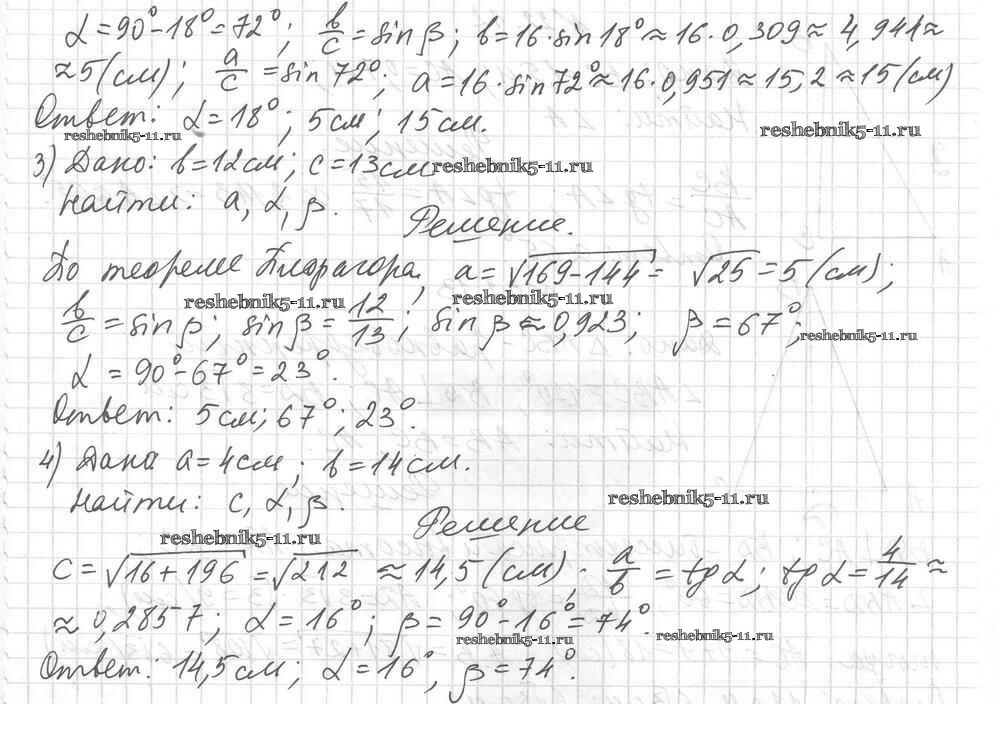 α = 90° − 18° = 72°; b/c = sin β; b = 16 · sin 18° ≈ 16 · 0,309 ≈ 4,941 ≈
≈ 5 (см); a/c = sin 72°; a = 16 · sin 72° ≈ 16 · 0,951 ≈ 15,2 ≈ 15 (см)
Ответ: α = 18°; 5 см; 15 см.
reshebnik5-11.ru reshebnik5-11.ru
3) Дано: b = 12 см; c = 13 см.
reshebnik5-11.ru
Найти: a, α, β.
Решение.
По теореме Пифагора, a = √169 − 144 = √25 = 5 (см);
reshebnik5-11.ru reshebnik5-11.ru
b/c = sin β; sin β = 12/13; sin β ≈ 0,923; β = 67°;
reshebnik5-11.ru
α = 90° − 67° = 23°.
Ответ: 5 см; 67°; 23°.
4) Дана a = 4 см; b = 14 см.
Найти: c, α, β.
reshebnik5-11.ru
Решение
reshebnik5-11.ru
c = √16 + 196 = √212 ≈ 14,5 (см). a/b = tg α; tg α = 4/14 ≈
≈ 0,2857; α = 16°; β = 90° − 16° = 74°.
reshebnik5-11.ru reshebnik5-11.ru
Ответ: 14,5 см; α = 16°, β = 74°.